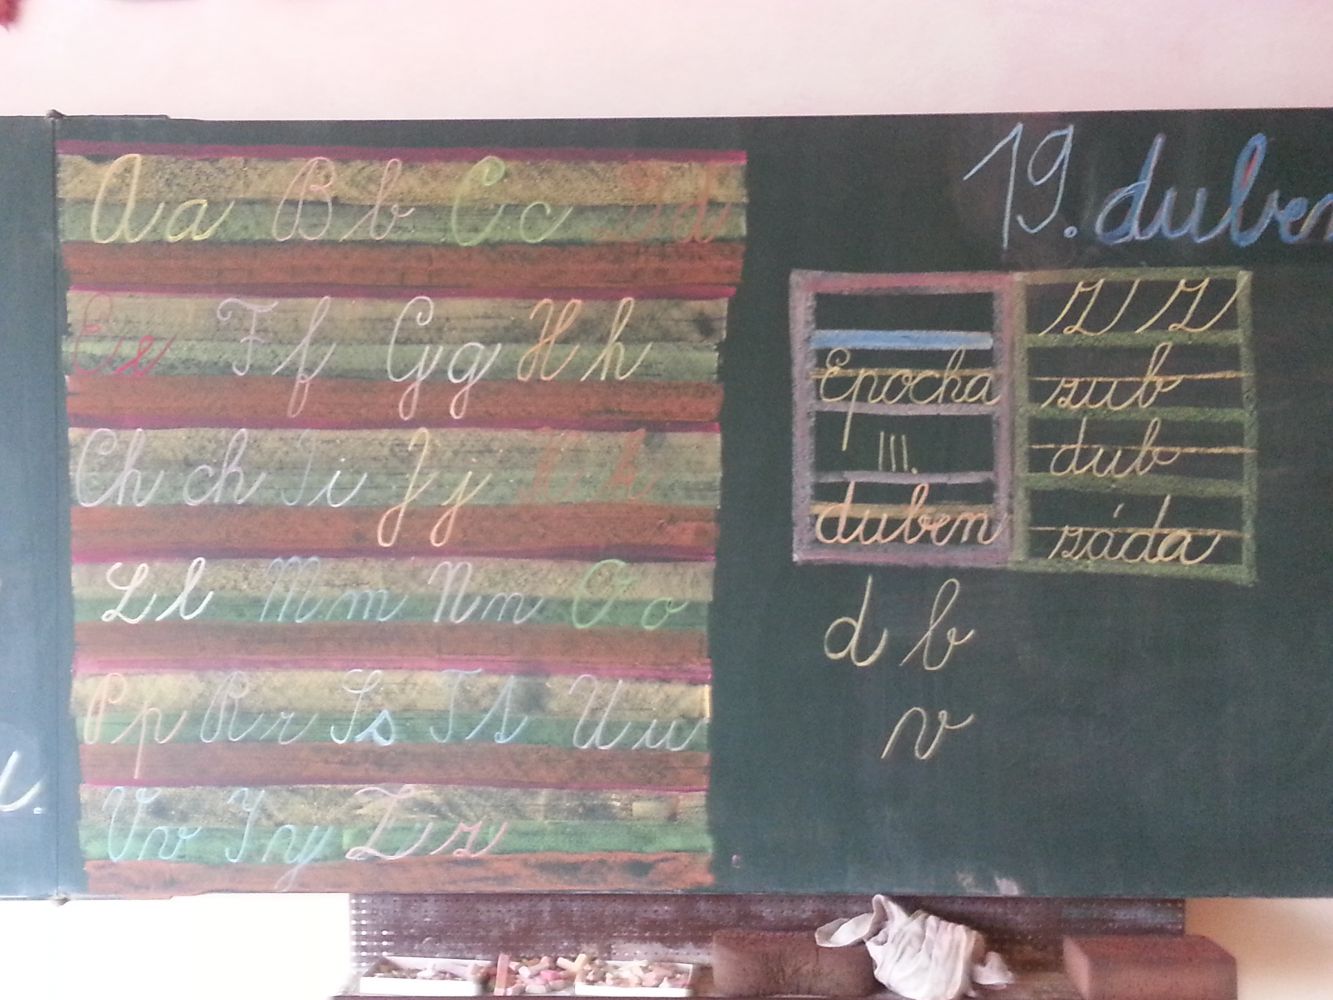 Aa Bb Cc Dd
Ee Ff Gg Hh
Ch ch Ii Jj Kk
Ll Mm Nn Oo
Pp Rr Ss Tt Uu
Vv Yy Zz
19. duben
Epocha
III.
duben
z z
zub
dub
záda
d b
v